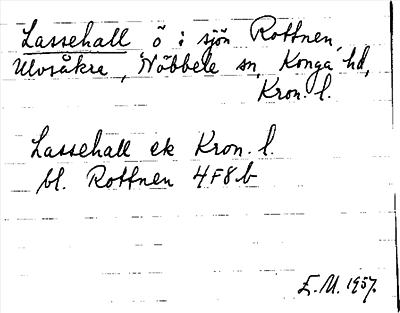 Lassehall ö i sjön Rottnen,
Ulvsåkra, Nöbbele sn, Konga hd,
Kron. l.
Lassehall ek Kron. l.
bl. Rottnen 4F8b
E.M. 1957.